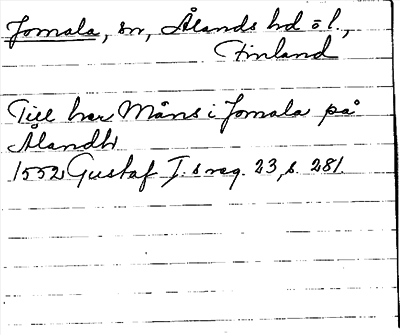 Jomala, sn, Ålands hd o l.,
Finland
Till her Måns i Jomala på
Ålandh
1552 Gustaf I:s reg. 23, s. 281.